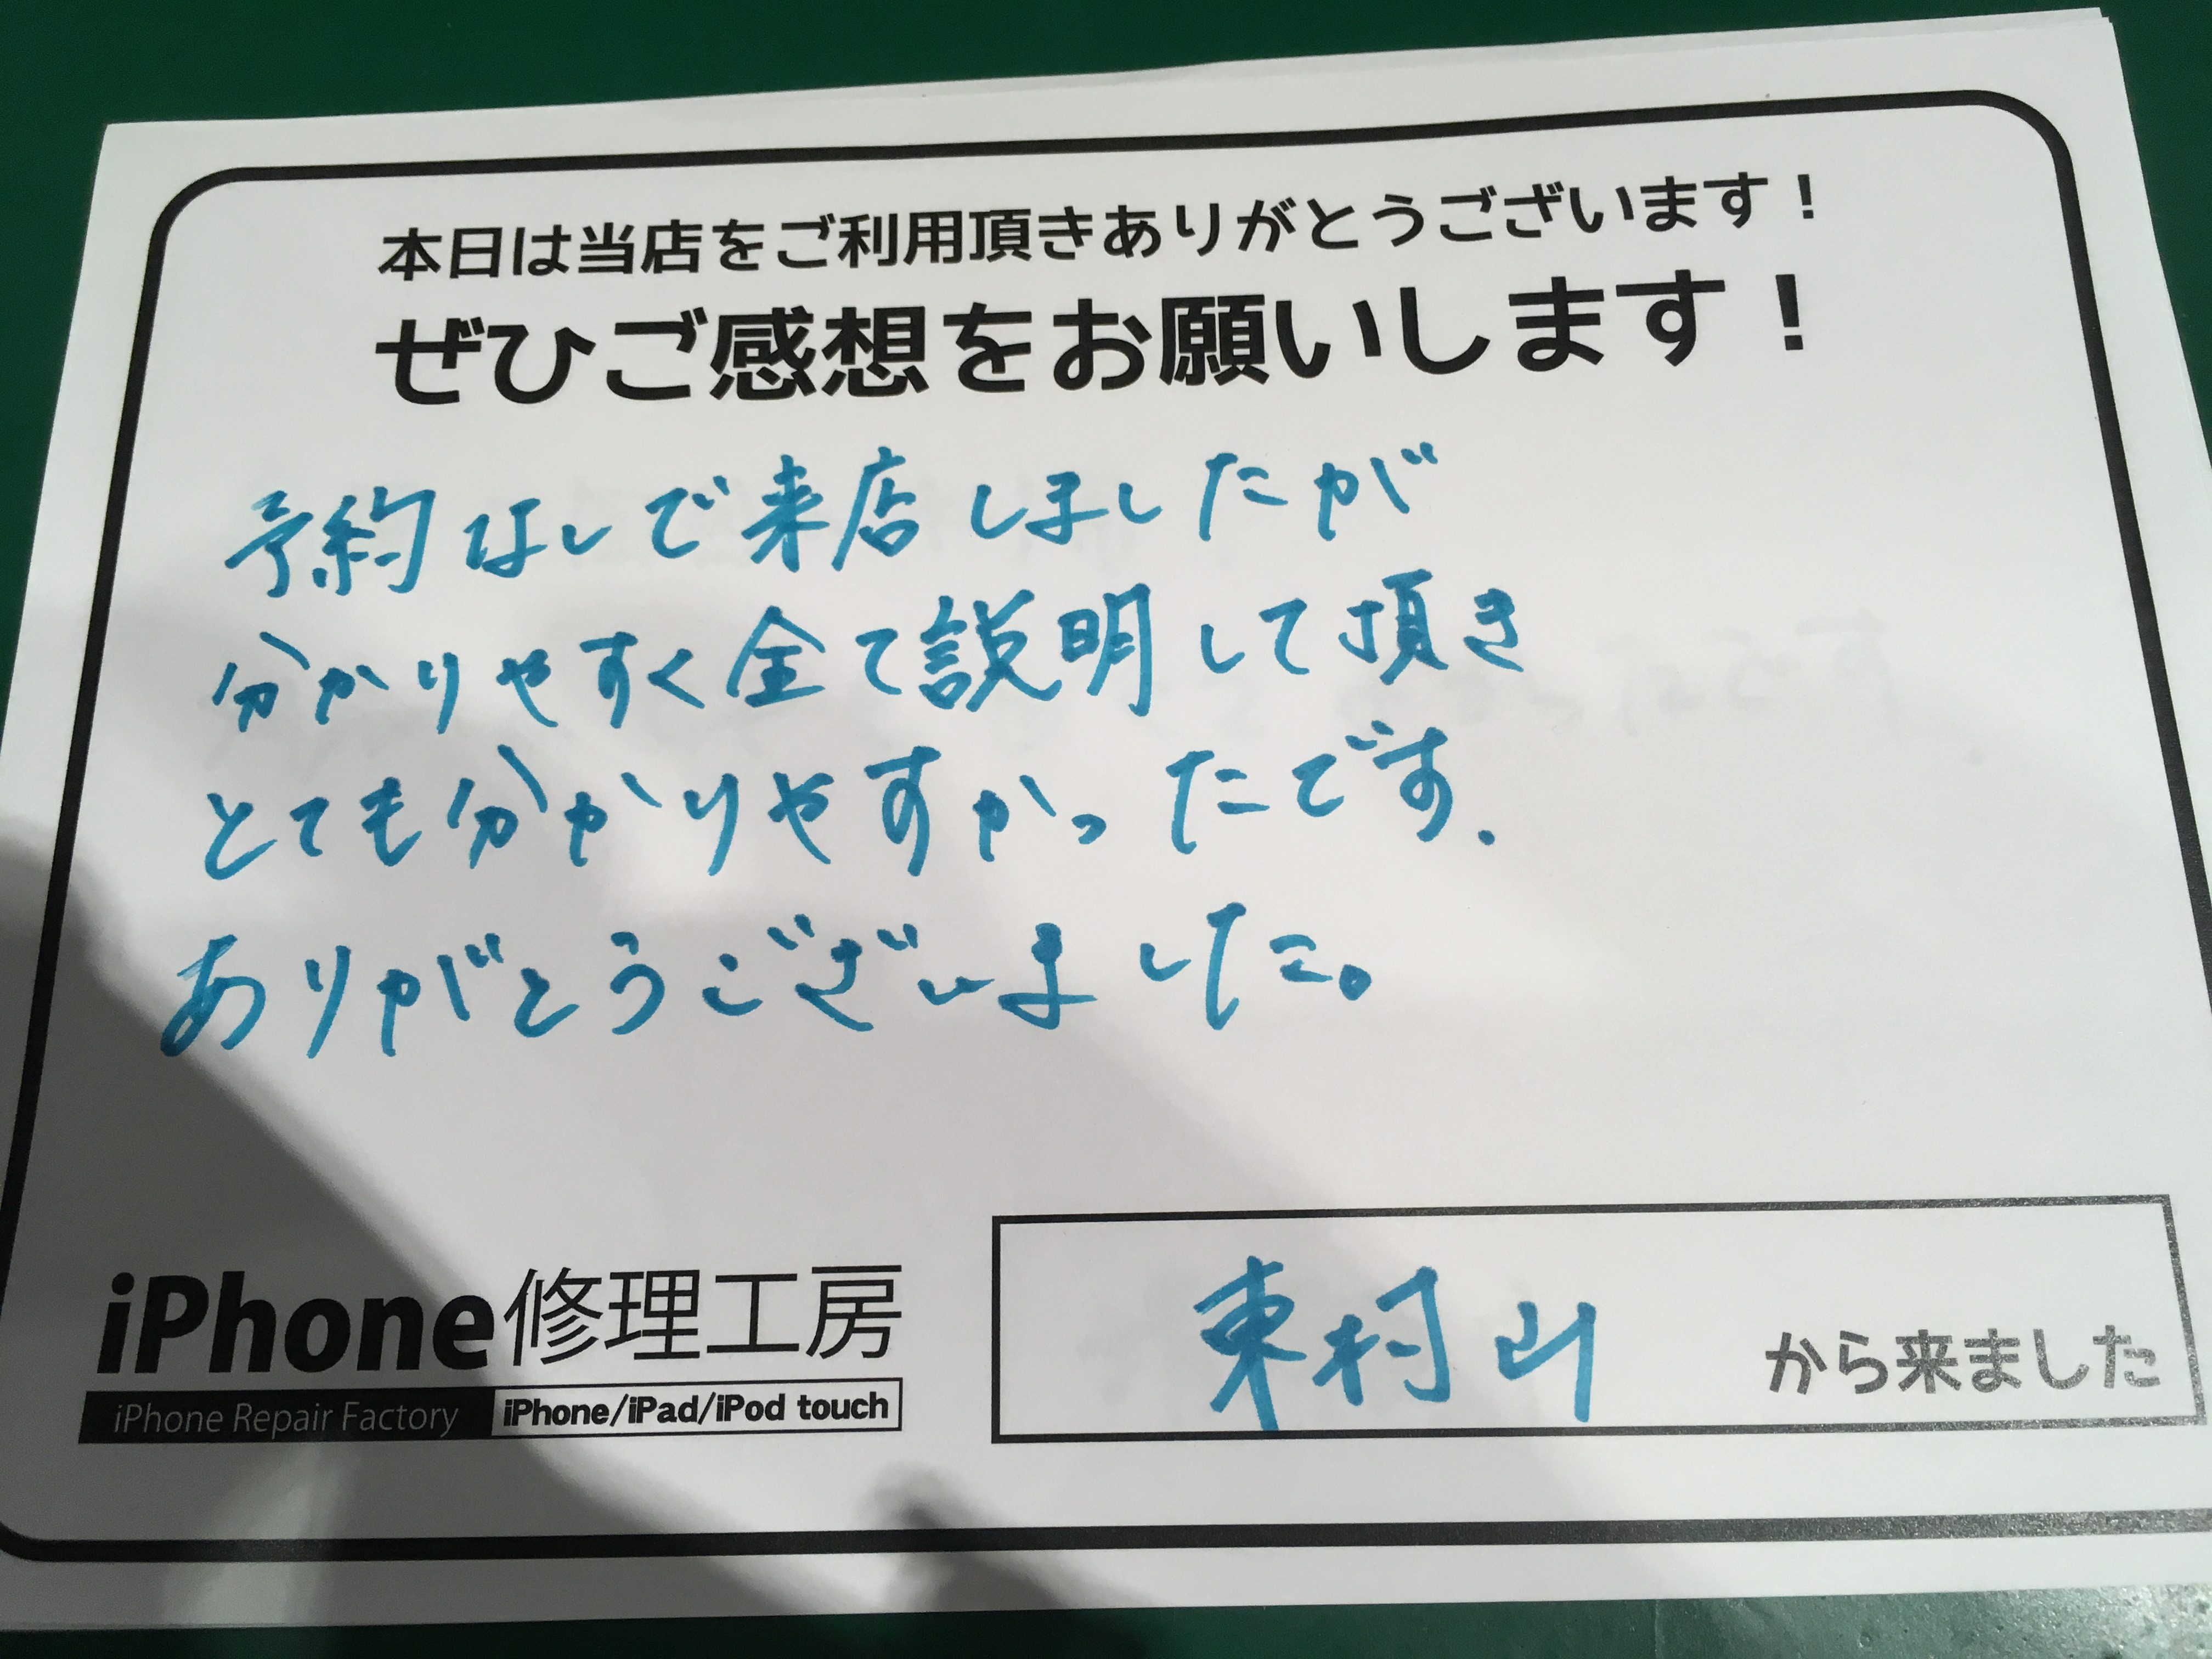 本日は当店をご利用頂きありがとうございます！
ぜひご感想をお願いします！
予約なしで来店しましたが
分かりやすく全て説明して頂き
とても分かりやすかったです.
ありがとうございました。
iPhone修理工房
iPhone Repair Factory iPhone/iPad/iPod touch
東村山 から来ました